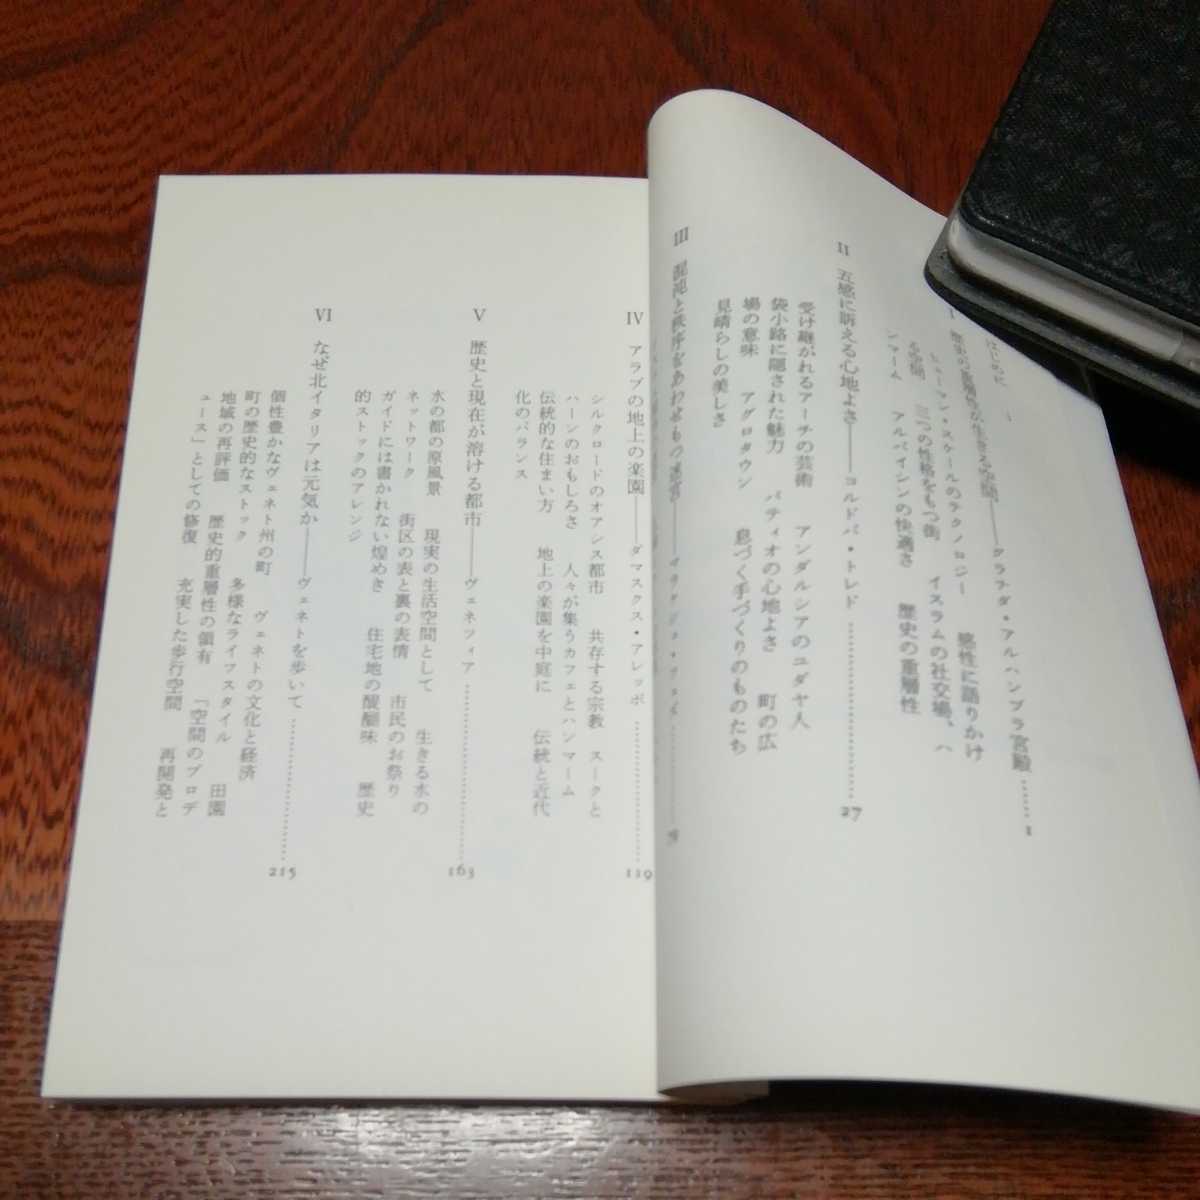 はじめに
歴史の重層性が生きる空間――グラナダ・アルハンブラ宮殿……1
ヒューマン・スケールのテクノロジー　感性に語りかけ
る空間　三つの性格をもつ街　イスラムの社交場、ハ
ンマーム　アルバイシンの快適さ　歴史の重層性
II　五感に訴える心地よさ――コルドバ・トレド……27
受け継がれるアーチの芸術　アンダルシアのユダヤ人
袋小路に隠された魅力　パティオの心地よさ　町の広
場の意味　アグロタウン　息づく手づくりのものたち
見晴らしの美しさ
III　混沌と秩序をあわせもつ迷宮――マラケシュ・フェズ……
IV　アラブの地上の楽園――ダマスクス・アレッポ……119
シルクロードのオアシス都市　共存する宗教　スークと
ハーンのおもしろさ　人々が集うカフェとハンマーム
伝統的な住まい方　地上の楽園を中庭に　伝統と近代
化のバランス
V　歴史と現在が溶ける都市――ヴェネツィア……163
水の都の原風景　現実の生活空間として　生きる水の
ネットワーク　街区の表と裏の表情　市民のお祭り
ガイドには書かれない煌めき　住宅地の醍醐味　歴史
的ストックのアレンジ
VI　なぜ北イタリアは元気か――ヴェネトを歩いて……215
個性豊かなヴェネト州の町　ヴェネトの文化と経済
町の歴史的なストック　多様なライフスタイル　田園
地域の再評価　歴史的重層性の領有　「空間のプロデ
ュース」としての修復　充実した歩行空間　再開発と